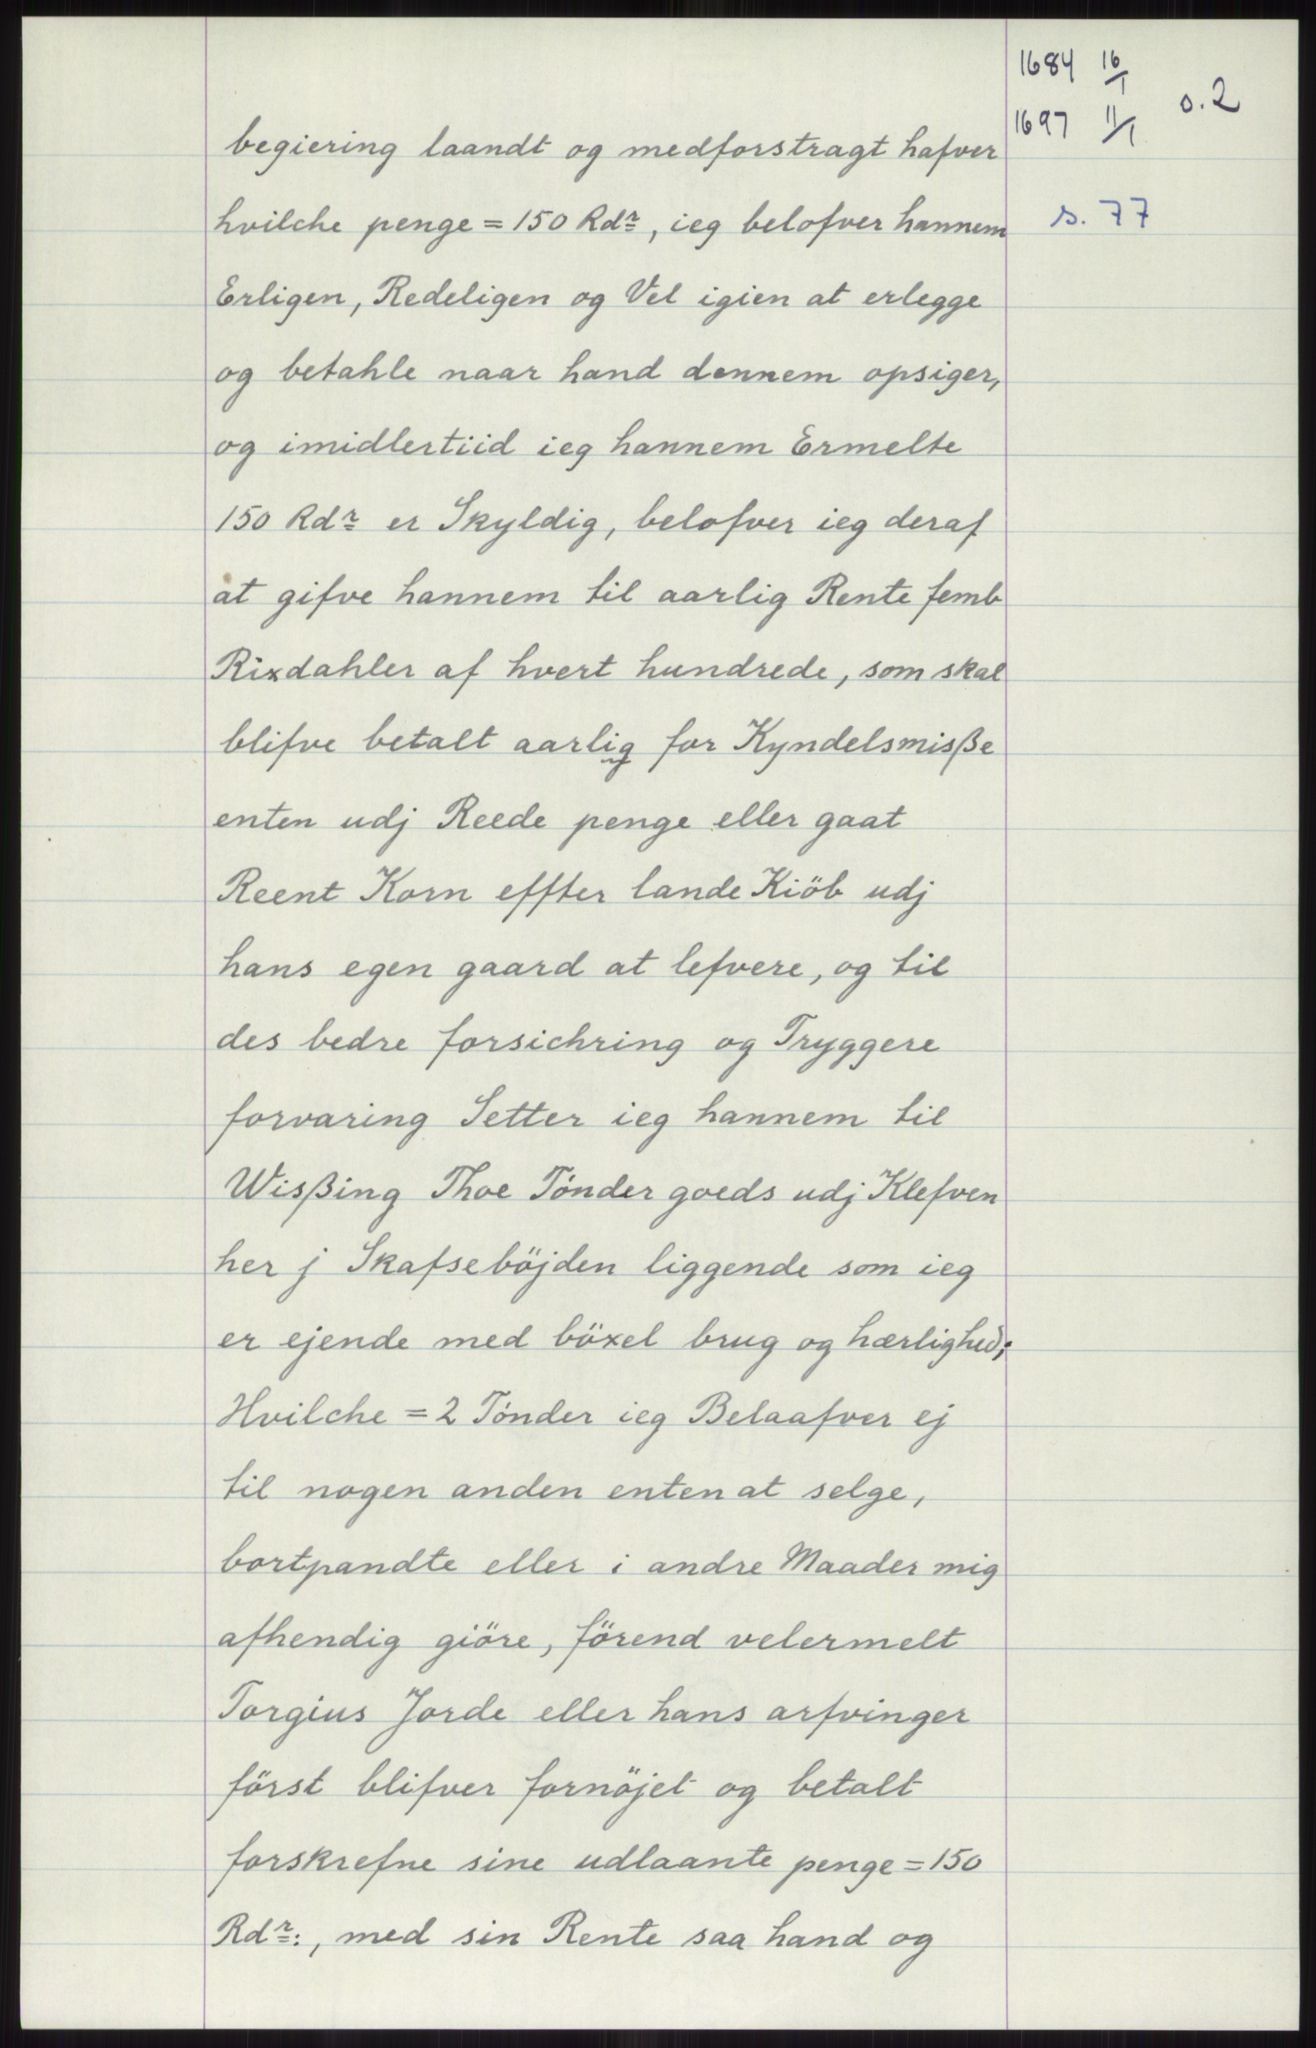 1684 16/1
1697 11/1 s. 2
s. 77
begiering laandt og medforstragt hafver
hvilche penge = 150 Rdr, ieg belofver hannem
Erligen, Redeligen og Vel igien at erlegge
og betahle naar hand dennem opsiger,
og imidlertiid ieg hannem Ermelte
150 Rdr er Skyldig, belofver ieg deraf
at gifve hannem til aarlig Rente femb
Rixdahler af hvert hundrede, som skal
blifve betalt aarlig for Kyndelsmisße
enten udj Reede penge eller gaat
Reent Korn effter lande Kiöb udj
hans egen gaard at lefvere, og til
des bedre forsichring og Tryggere
forvaring Setter ieg hannem til
Wisßing Thoe Tönder goeds udj Klefven
her j Skafseböjden liggende som ieg
er ejende med böxel brug og hærlighed;
Hvilche = 2 Tönder ieg Belaafver ej
til nogen anden enten at selge,
bortpandte eller i andre Maader mig
afhendig giöre, förend velermelt
Torgius Jorde eller hans arfvinger
först blifver fornöjet og betalt
forskrefne sine udlaante penge = 150
Rdr:, med sin Rente saa hand og